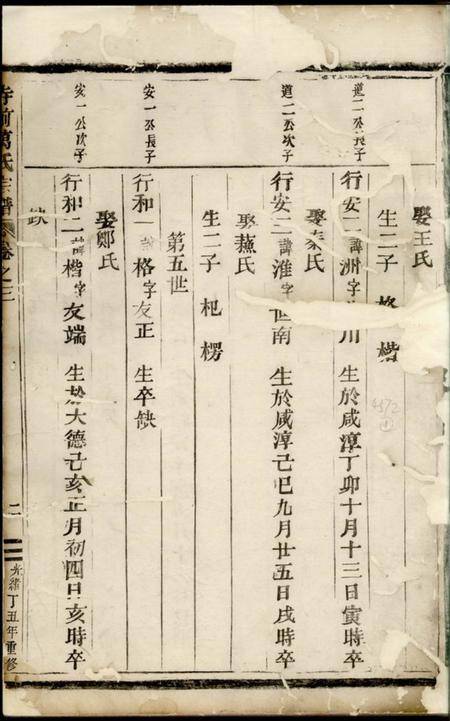 娶王氏
生二子 格 楷
道二公長子
行安一諱洲字 川 生於咸淳丁卯十月十三日寅時卒
娶秦氏
道二公次子
行安二諱淮字世南 生於咸淳己巳九月廿五日戌時卒
娶燕氏
生二子 杞 楞
第五世
安一公長子
行和一諱格字友正 生卒缺
娶鄭氏
安一公次子
行和二諱楷字友端 生於大德己亥正月初四日亥時卒
缺
寺前萬氏宗譜 卷之三
二
光緒丁丑年重修